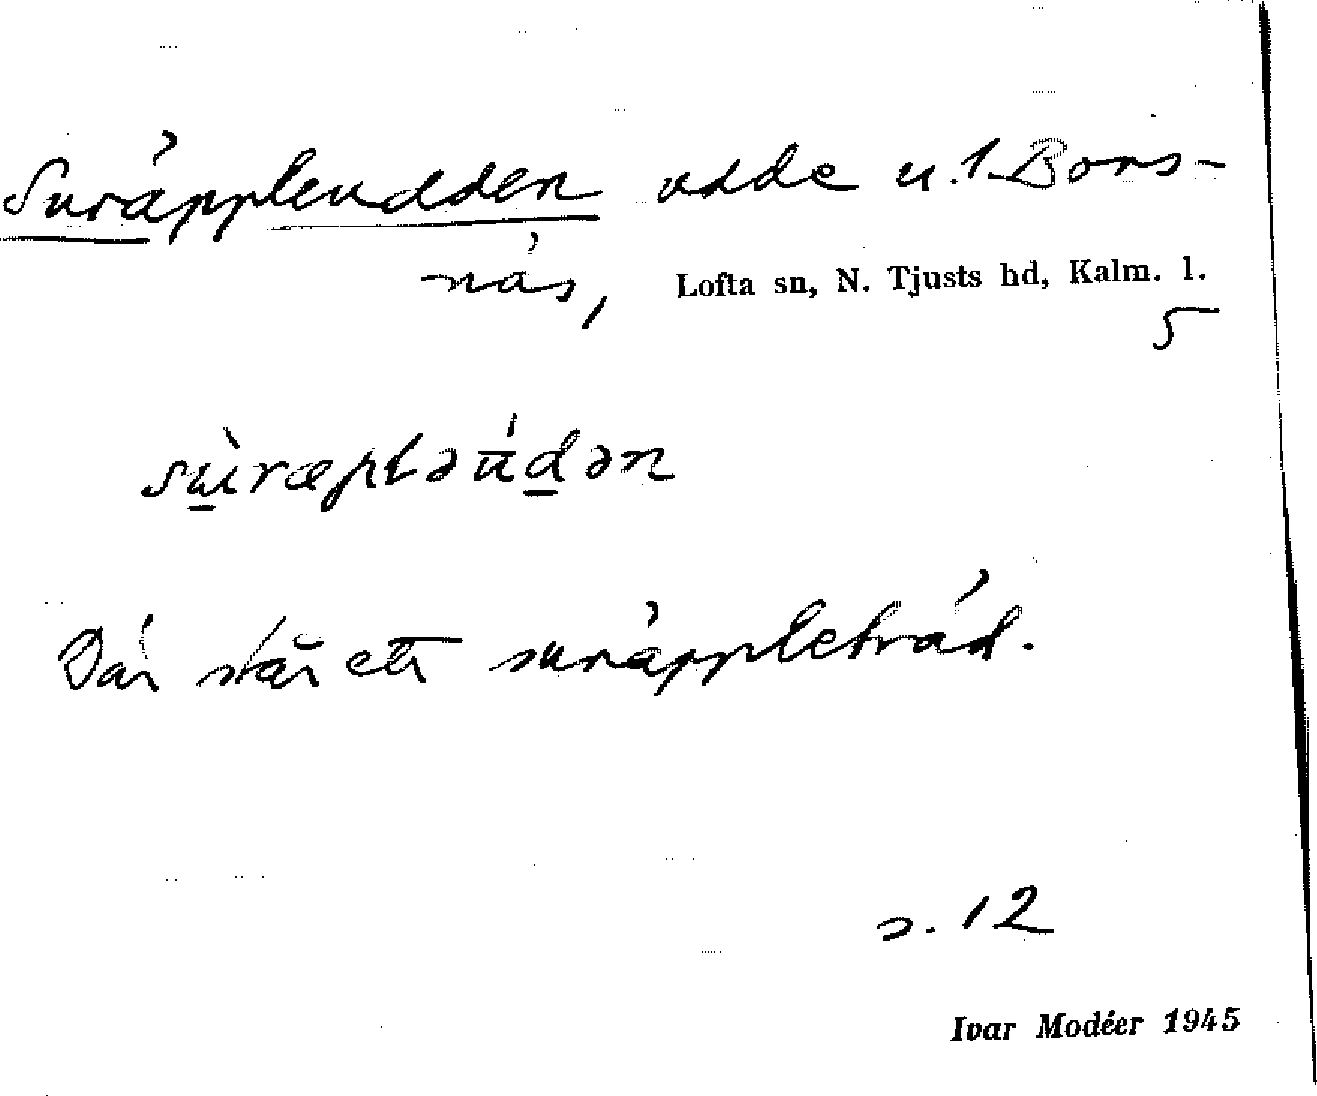 Suräppleudden udde u. 1 Bors-
näs, Lofta sn, N. Tjusts hd, Kalm. l.
5
sùræpləúdən
Där står ett suräppleträd.
s. 12
Ivar Modéer 1945